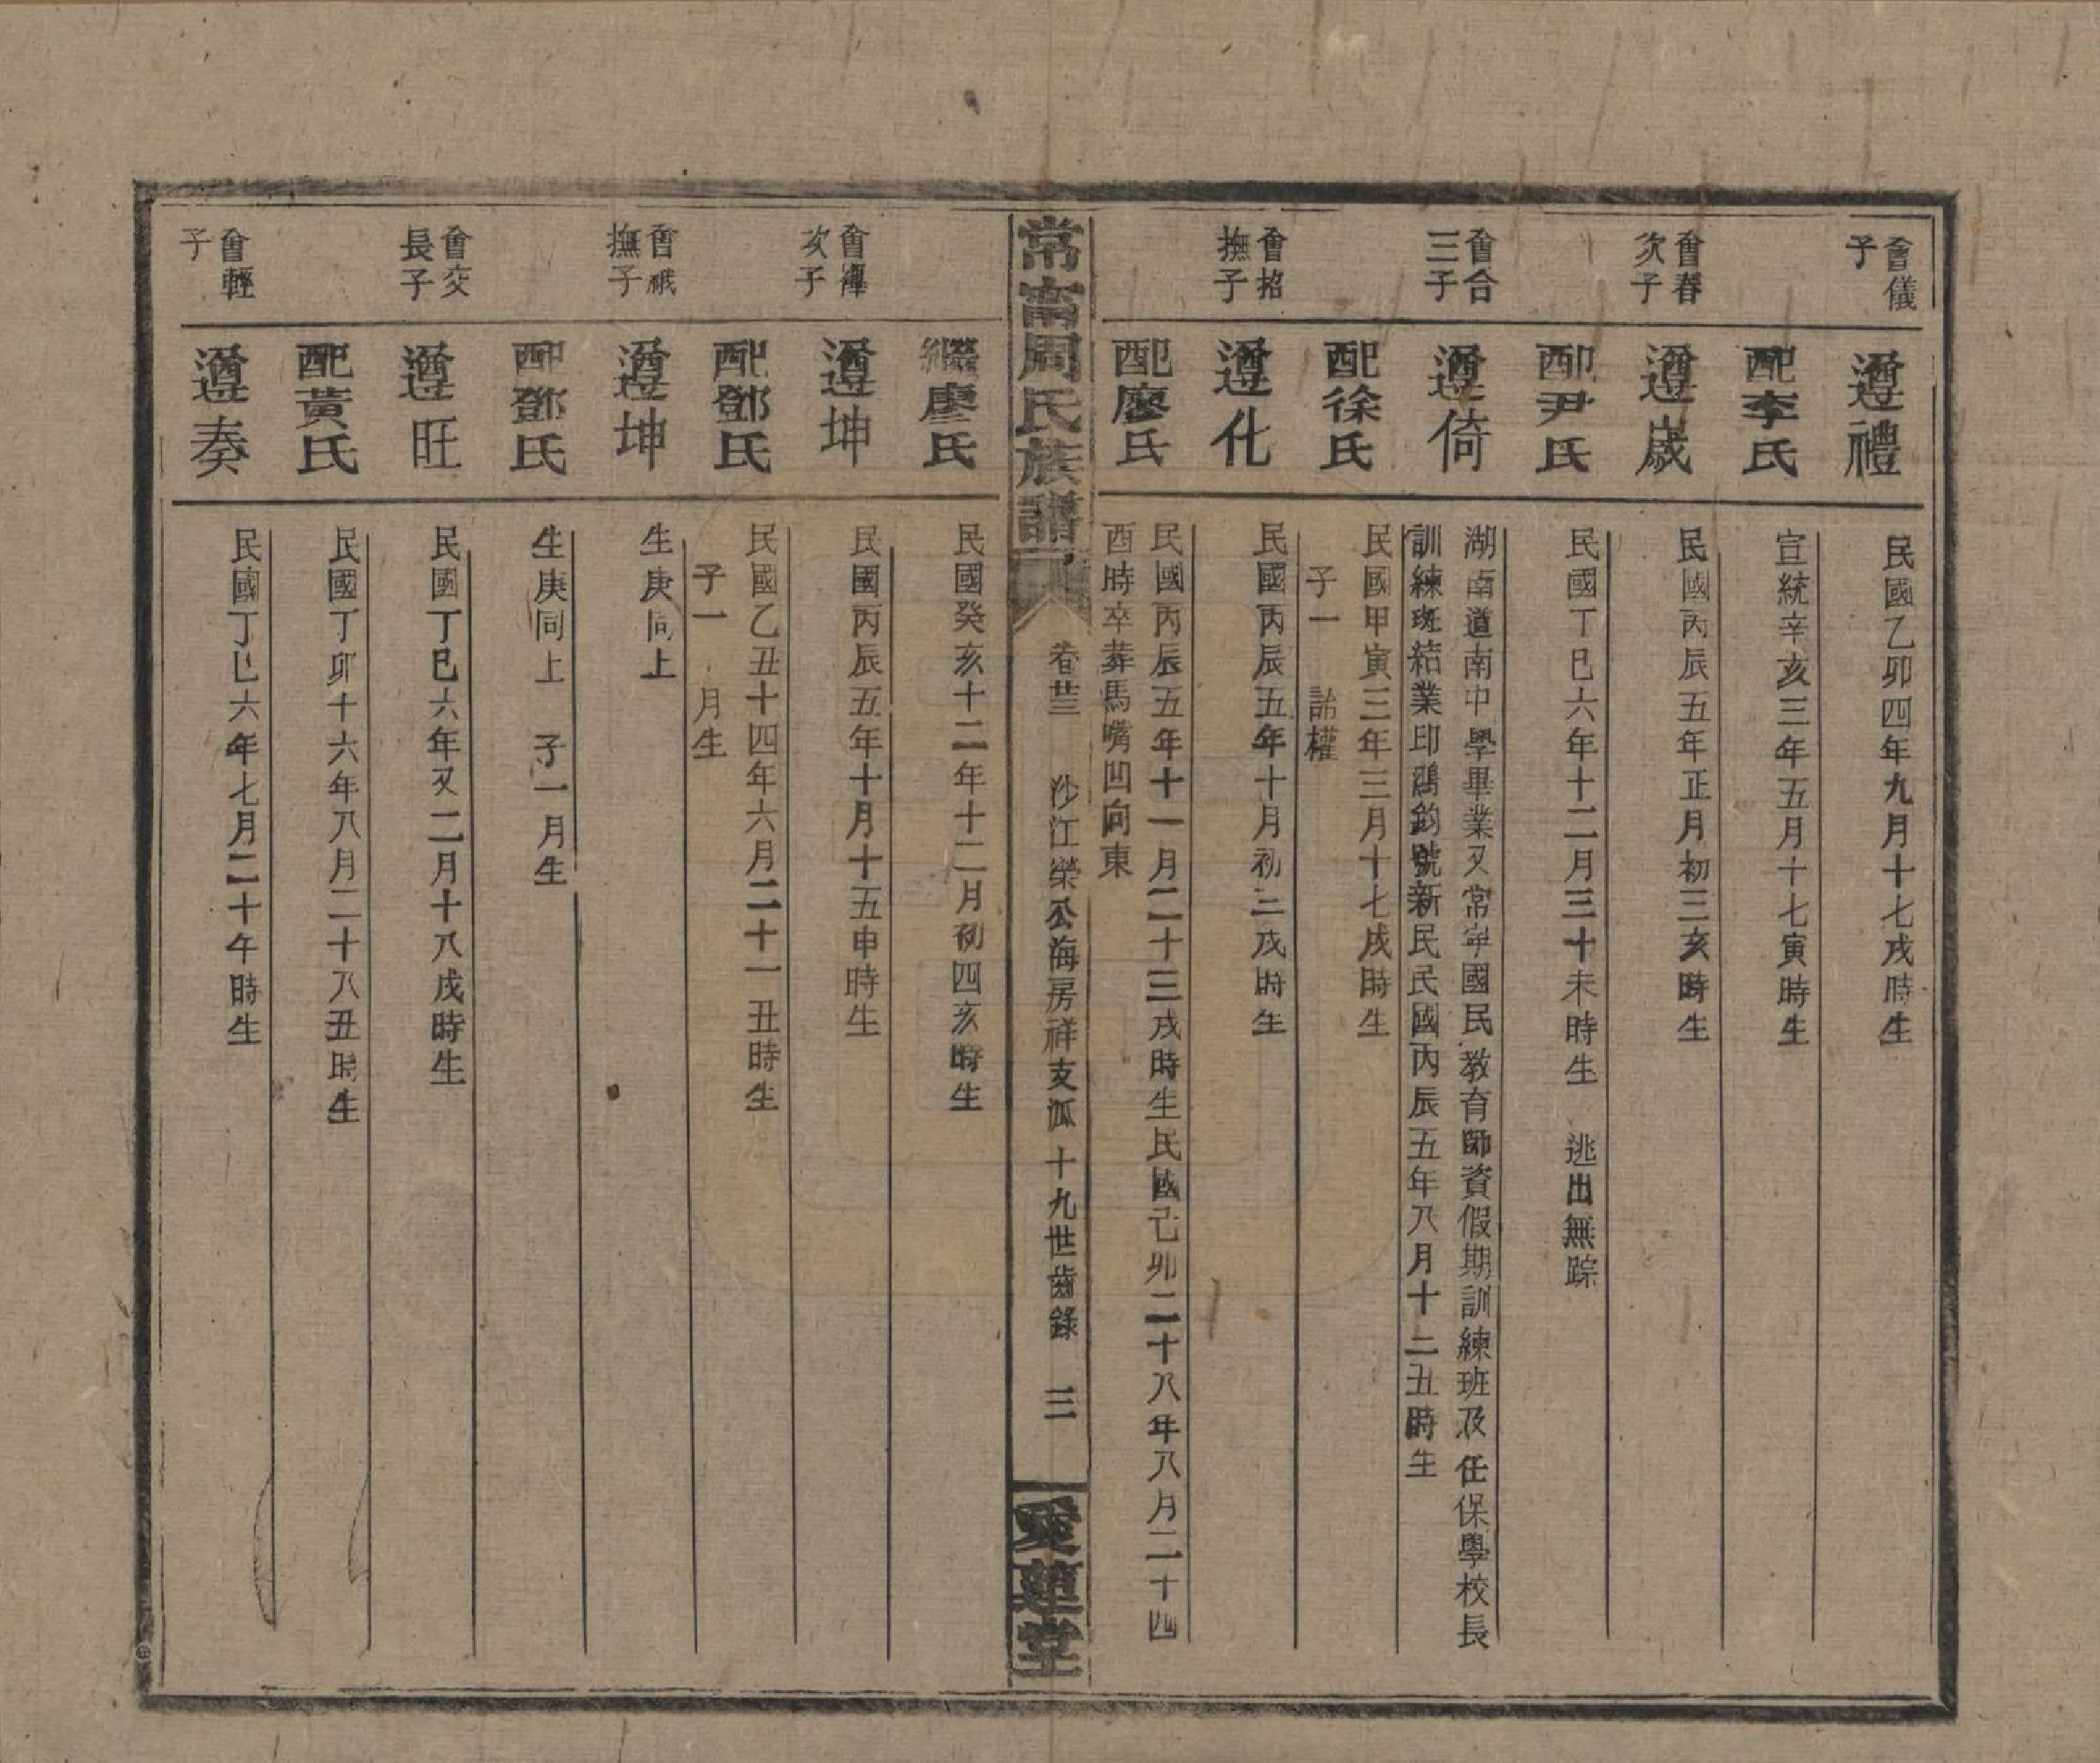 會儀
子
遵禮
民國乙卯四年九月十七戌時生
配李氏
宣統辛亥三年五月十七寅時生
會春
次子
遵歲
民國丙辰五年正月初三亥時生
配尹氏
民國丁巳六年十二月三十未時生 逃出無踪
會合
三子
遵倚
湖南道南中學畢業又常寜國民教育師資假期訓練班及任保學校長
訓練班結業印鴻鈞號新民民國丙辰五年八月十二丑時生
配徐氏
民國甲寅三年三月十七戌時生
子一 詒權
會招
撫子
遵化
民國丙辰五年十月初二戌時生
配廖氏
民國丙辰五年十一月二十三戌時生民國己卯二十八年八月二十四
酉時卒葬馬嘴凹向東
常甯周氏族譜
卷廿三 沙江榮公海房祥支派十九世齒錄 三
愛蓮堂
繼廖氏
民國癸亥十二年十二月初四亥時生
會
次子
遵坤
民國丙辰五年十月十五申時生
配鄧氏
民國乙丑十四年六月二十一丑時生
子一 月生
會峨
撫子
遵坤
生庚同上
配鄧氏
生庚同上 子一月生
會交
長子
遵旺
民國丁巳六年又二月十八戌時生
配黃氏
民國丁卯十六年八月二十八丑時生
會輕
子
遵奏
民國丁巳六年七月二十午時生